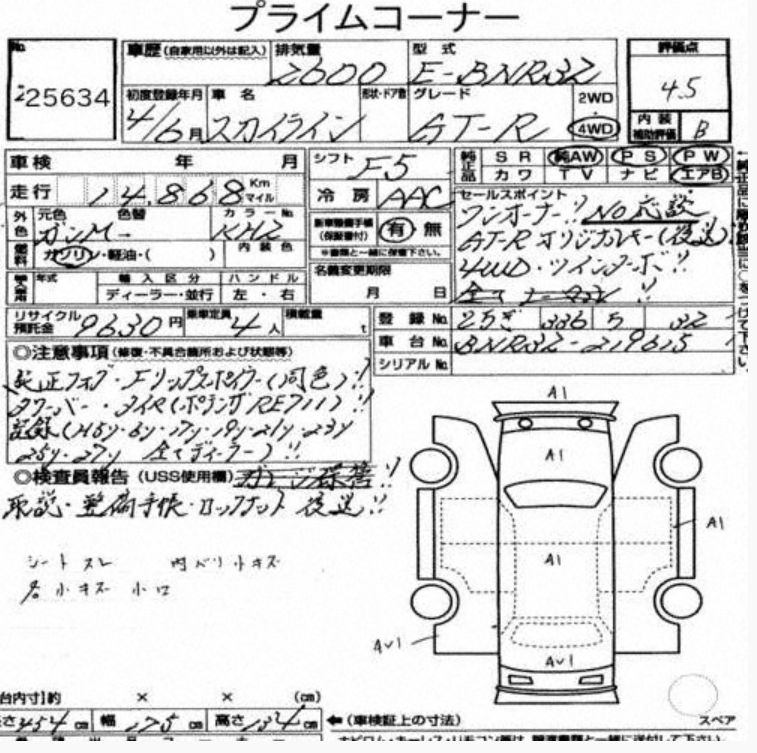 プライムコーナー
No. 25634
車歴(自家用以外は記入) 排気量 2600 型式 E-BNR32
初度登録年月 4/6月 車名 スカイライン 形状・ドア数 グレード GT-R 2WD 4WD
評価点 4.5
内装補助評価 B
車検 年 月 シフト F5
純正品 SR 純AW PS PW
カワ TV ナビ エアB
走行 14,868 Km マイル 冷房 AAC
セールスポイント
ワンオーナー!! NO応談
GT-R オリジナルキー(後送)
4WD・ツインターボ!!
外色 元色 ガンM 色替 カラーNo. KH2
内装色
新車整備手帳(保証書付) 有・無
※書類と一緒に保管下さい。
燃料 ガソリン・軽油・( )
名義変更期限 月 日
輸入車用 年式 輸入区分 ハンドル
ディーラー・並行 左・右
リサイクル預託金 9630円 乗車定員 4人 積載量 t
登録No. 33 5 32
車台No. BNR32-219615
シリアルNo.
◎注意事項(修復・不具合箇所および状態等)
純正フォグ・Fリップスポイラー(同色)!!
タワーバー・タイR(ポテンザRE711)!!
記録(H5y・6y・17y・19y・21y・23y
25y・27y 全てディーラー)!!
◎検査員報告(USS使用欄) ガレージ保管!!
取説・整備手帳・ロックナット 後送!!
シートスレ 内ハリ小キズ
各小キズ 小凹
A1
A1
A1
A1
AU1
AU1
台内寸]約 × × (cm)
さ454cm 幅 175cm 高さ134cm ←(車検証上の寸法) スペア